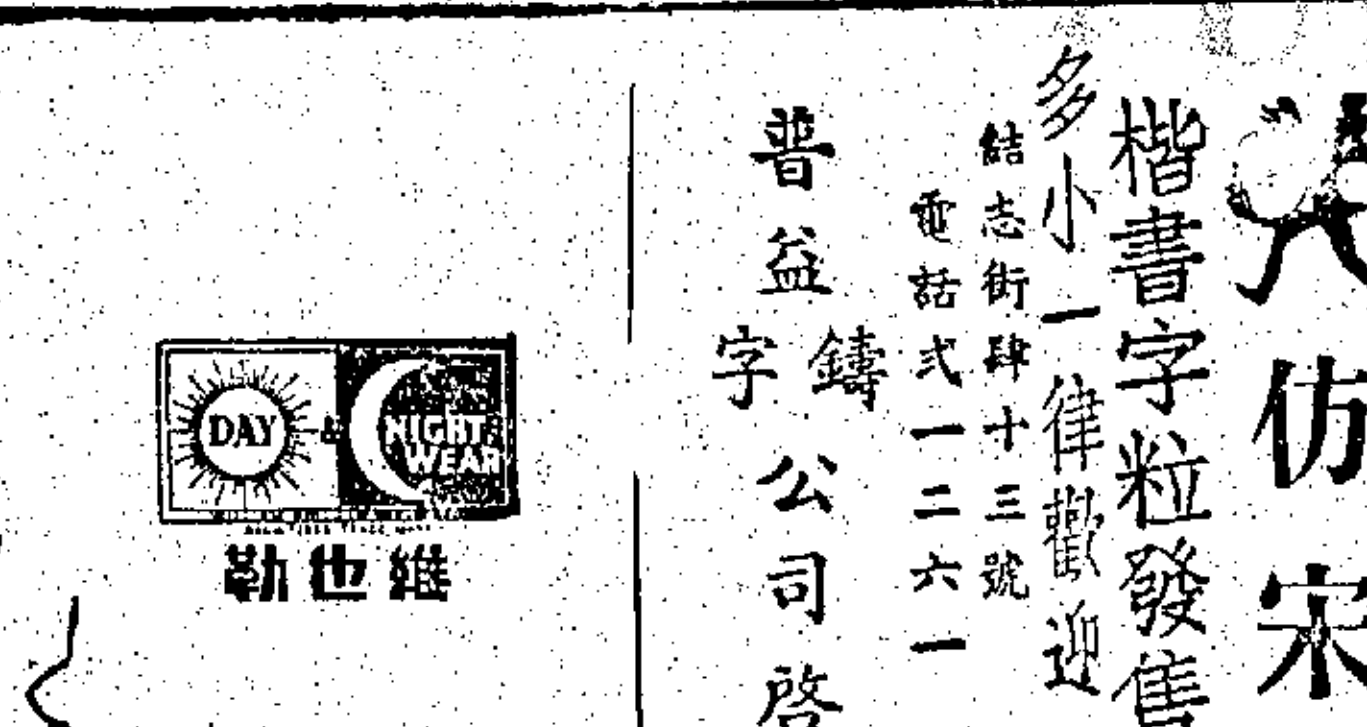 仿宋
楷書字粒發售
多小一律歡迎
結志街肆十三號
電話弍一二六一
普益鑄字公司啓
DAY
&
NIGHT
WEAR
維也勒